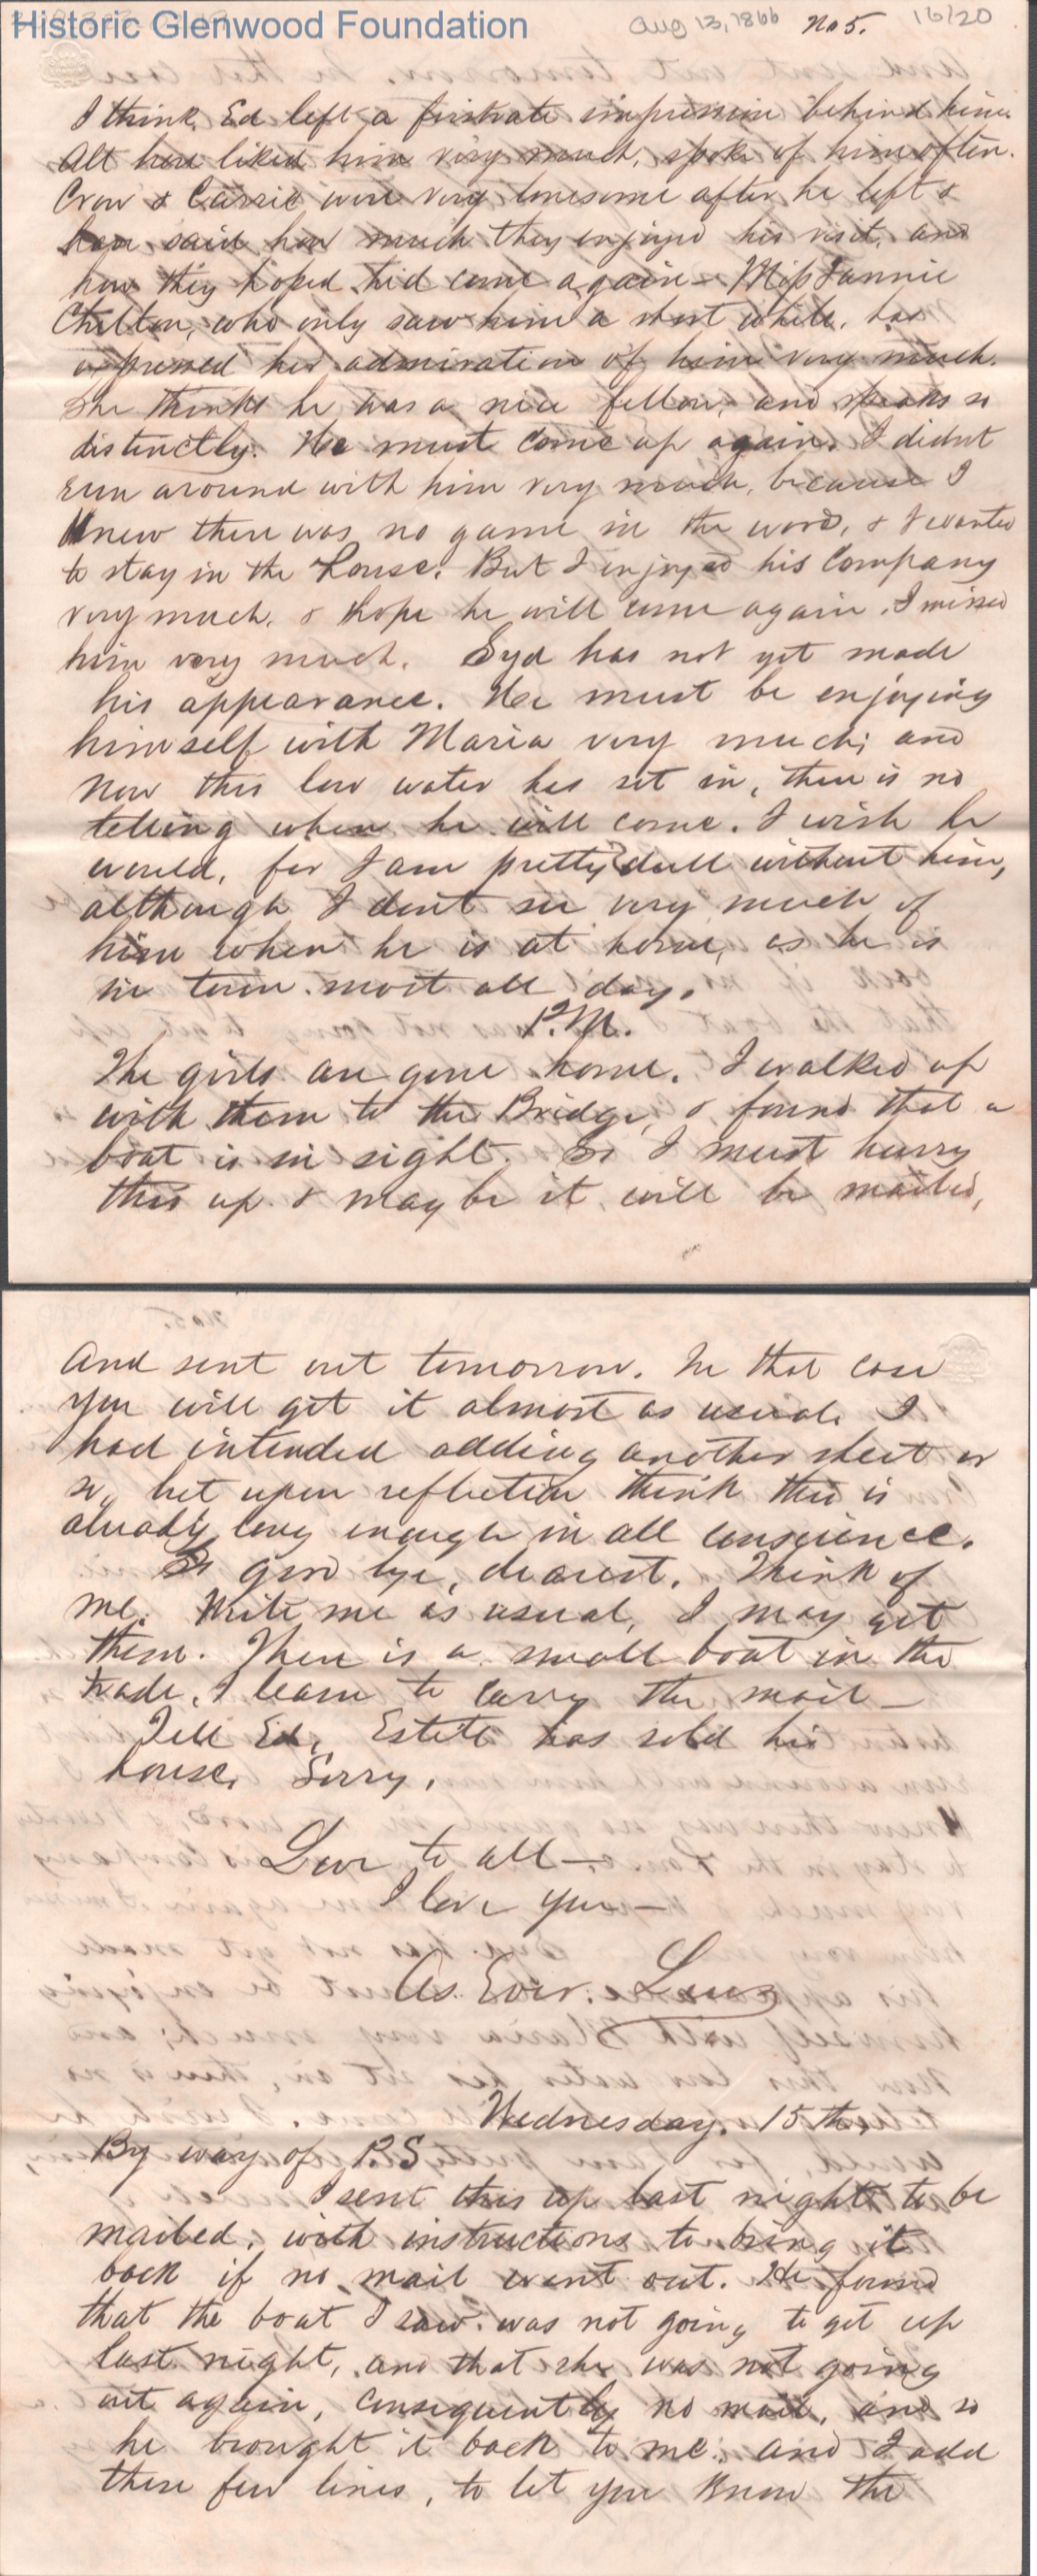 Historic Glenwood Foundation
Aug 13, 1866 No 5. 16/20
I think Ed left a firstrate impression behind him.
All here liked him very much, spoke of him often.
Crow & Carrie were very lonesome after he left &
have said how much they enjoyed his visit, and
how they hoped he'd come again - Miss Fannie
Chilton, who only saw him a short while, has
expressed her admiration of him very much.
She thinks he was a nice fellow, and speaks so
distinctly. He must come up again. I didnt
run around with him very much, because I
knew there was no game in the woods, & I wanted
to stay in the house. But I enjoyed his company
very much, & hope he will come again. I missed
him very much. Syd has not yet made
his appearance. He must be enjoying
himself with Maria very much; and
now this low water has set in, there is no
telling when he will come. I wish he
would, for I am pretty dull without him,
although I dont see very much of
him when he is at home, as he is
in town most all day.
P.M.
The girls are gone home. I walked up
with them to the Bridge, & found that a
boat is in sight. So I must hurry
this up & maybe it will be mailed,
And sent out tomorrow. In that case
you will get it almost as usual. I
had intended adding another sheet or
so, but upon reflection think this is
already long enough in all conscience.
So good bye, dearest. Think of
me. Write me as usual, I may get
them. There is a small boat in the
trade, I learn to carry the mail -
Tell Ed, Estill has sold his
house. Sorry.
Love to all -
I love you -
As Ever.
Wednesday. 15th.
By way of P.S
I sent this up last night to be
mailed, with instructions to bring it
back if no mail went out. He found
that the boat I saw was not going to get up
last night, and that she was not going
out again, consequently no mail, and so
he brought it back to me. And I add
these few lines, to let you know the